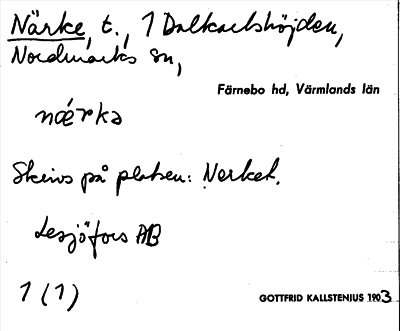 Närke, t., 1 Dalkarlshöjden,
Nordmarks sn,
Färnebo hd, Värmlands län
nǽrkə
Skrivs på platsen: Nerket.
Lesjöfors AB
1 (1)
GOTTFRID KALLSTENIUS 1903